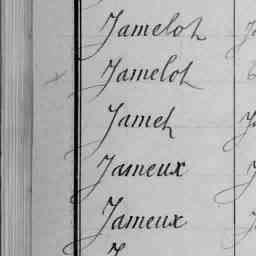 Jamelot
Jamelot
Jamet
Jameux
Jameux